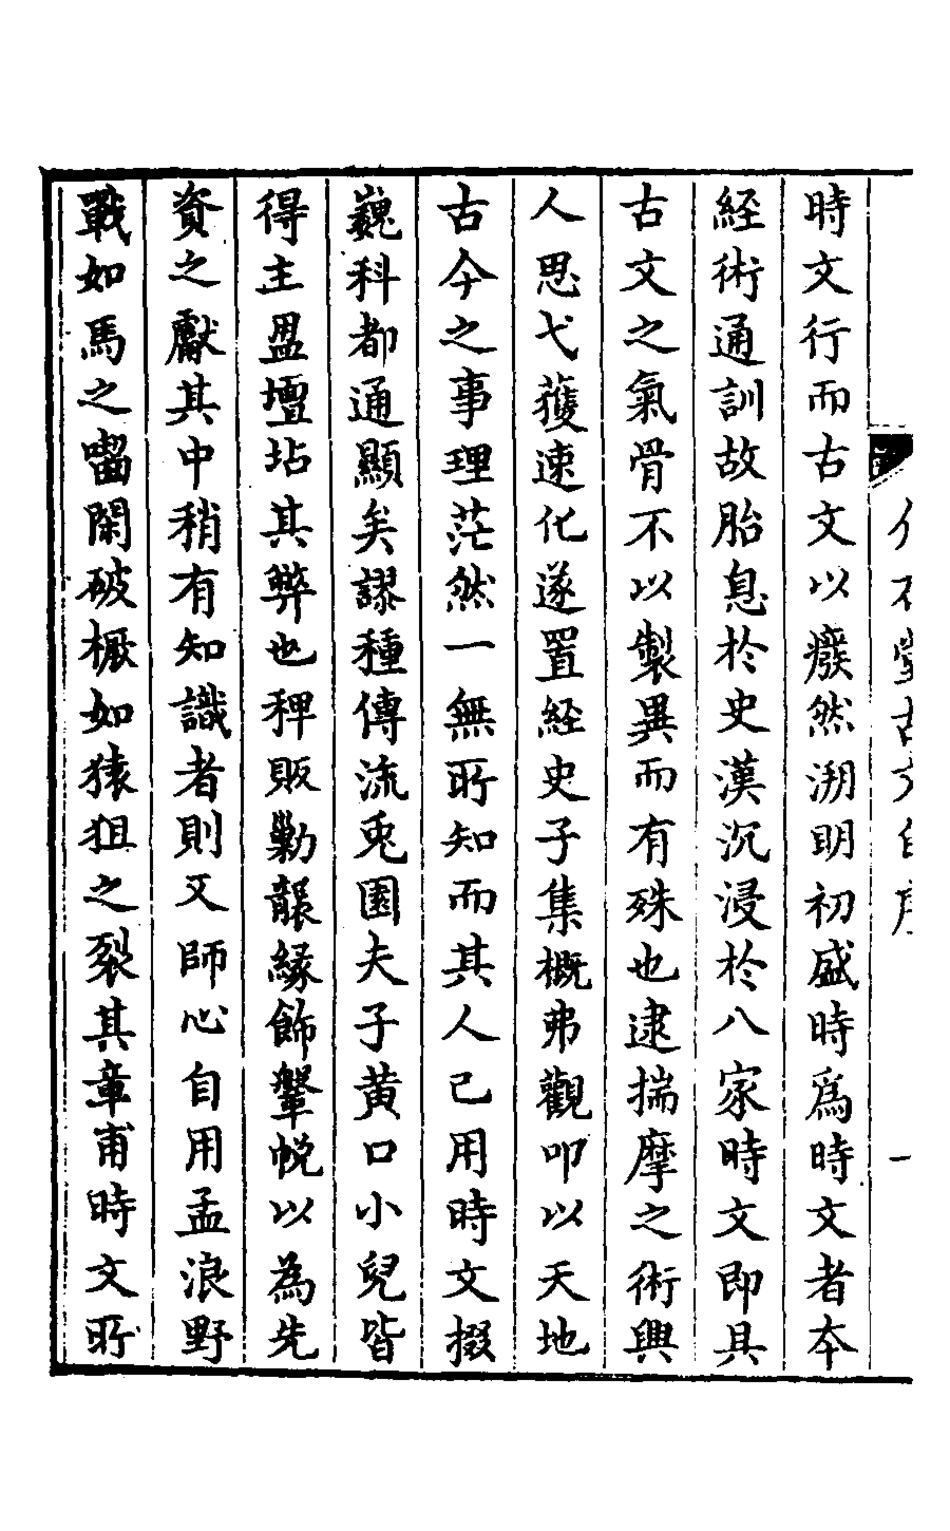 時文行而古文以癈然溯明初盛時爲時文者本
經術通訓故胎息於史漢沉浸於八家時文即具
古文之氣骨不以製異而有殊也逮揣摩之術興
人思弋獲速化遂置經史子集概弗觀叩以天地
古今之事理茫然一無所知而其人已用時文掇
巍科都通顯矣謬種傳流兎園夫子黄口小兒皆
得主盟壇坫其弊也稗販勦襲緣飾鞶帨以為先
資之獻其中稍有知識者則又師心自用孟浪野
戰如馬之囓閑破橛如猿狙之裂其章甫時文所